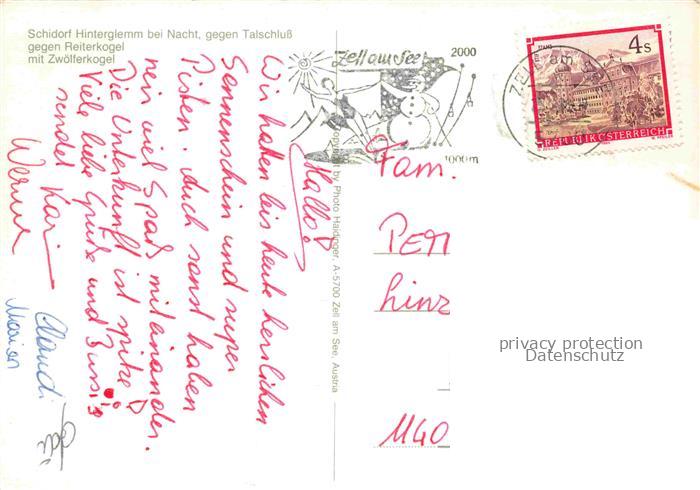 Schidorf Hinterglemm bei Nacht, gegen Talschluß
gegen Reiterkogel
mit Zwölferkogel
Hallo!
Wir hatten bis heute herrlichen
Sonnenschein und super
Pisten. Auch sonst haben
wir viel Spaß miteinander.
Die Unterkunft ist spitze!
Viele liebe Grüße und Bussis
sendet Kari
Werner
Claudi
Marion
Copyright by Photo Haidinger, A-5700 Zell am See, Austria
Zell am See
2000
1000m
STAMS
4 S
REPUBLIK ÖSTERREICH
Zell am
Fam.
PETT
Linz
1140
privacy protection
Datenschutz